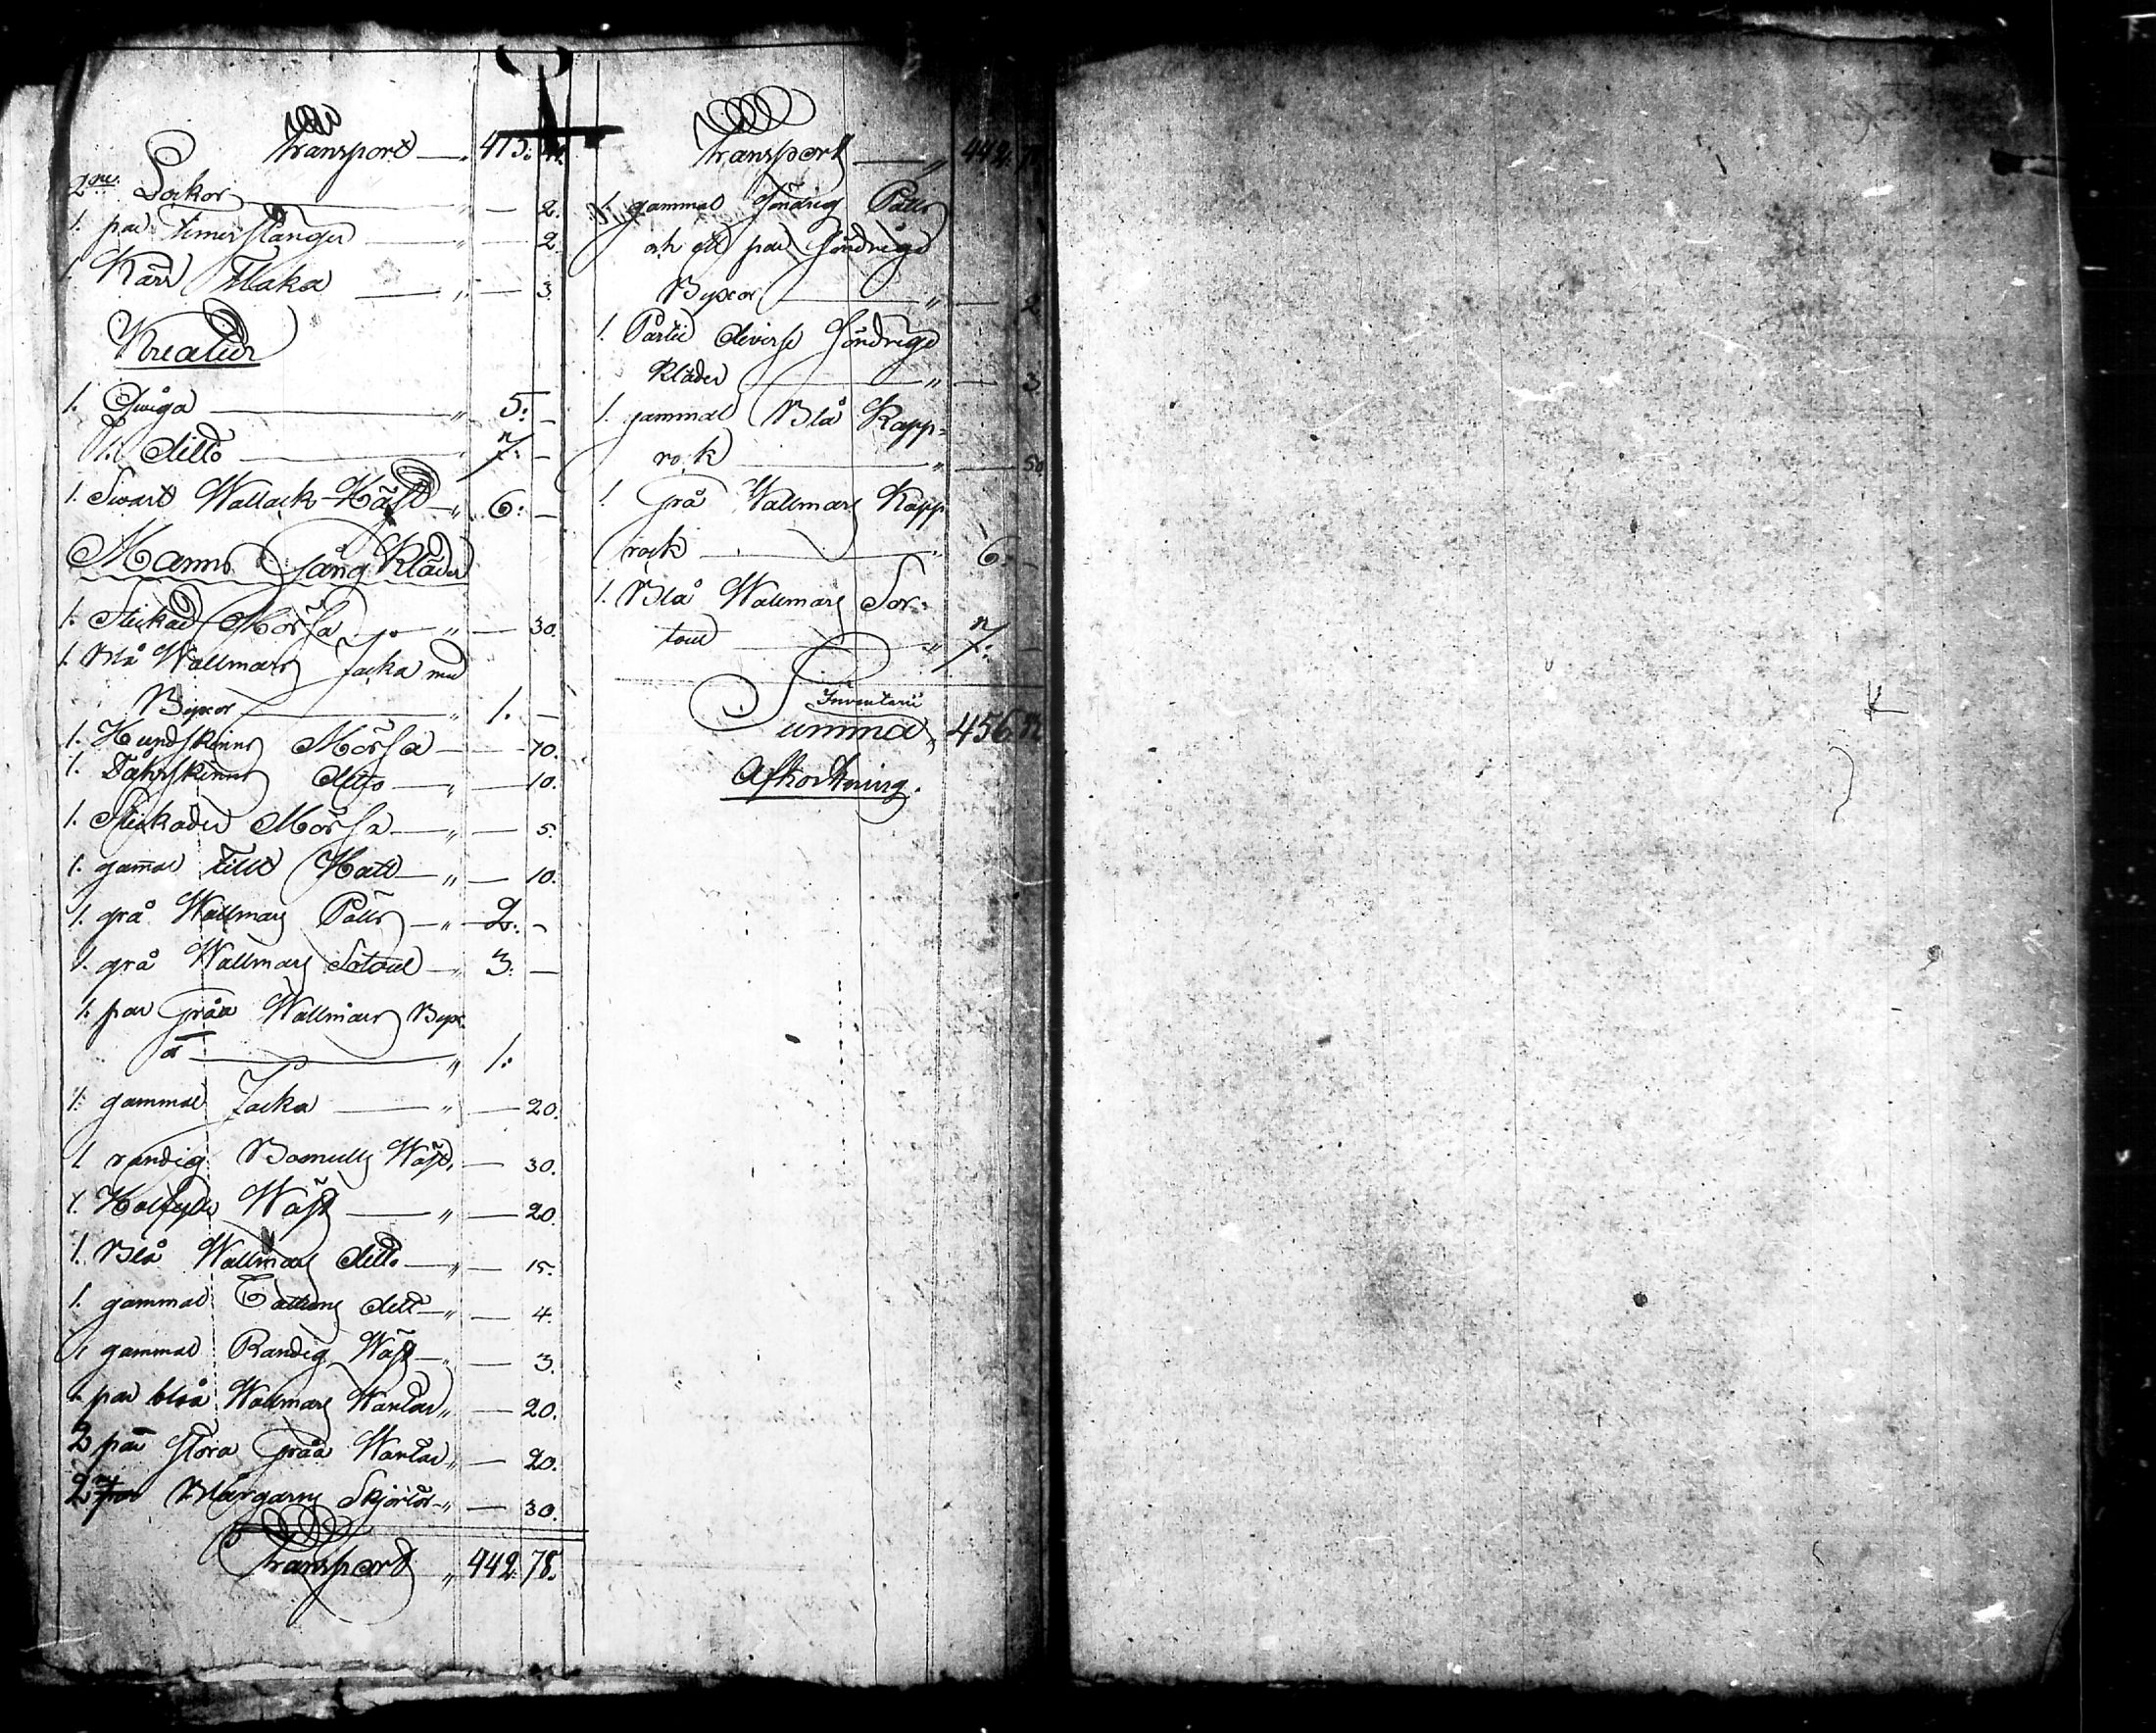 Transport — " 415.
2ne Sockor — " — 2.
1. par timerstänger — " — 2.
1 Kärr Flaka — " — 3.
Kreatur
1. Qwiga — " 5: —
1. ditto — " 7: —
1. Swart Wallack Häst — " 6: —
Manns Gång Kläder
1. Stickad Mössa — " — 30.
1. Blå Wallmars Jacka med
Bÿxor — " 1. —
1. Hundskinns Mössa — — 10.
1. skinns ditto — " — 10.
1. Stickader Mössa — " — 5.
1. gamal filt Hatt — " — 10.
1. grå Wallmars Päls — " 2: —
1. grå Wallmars Sotout — " 3: —
1. par Gråa Wallmars Byx-
or — " 1:
1. gammal Jacka — " — 20.
1 randig Bomulls Wäst, — 30.
1. Halfylle Wäst — " — 20.
1. Blå Wallmars ditto — " — 15.
1. gammal Cattuns ditt — " — 4.
1 gammal Randig Wäst — " — 3.
1. par blåa Wallmars Wantar " — 20.
2 par stora Gråa Wantar " — 20.
2ne Blårgarns Skjortor — " — 30.
Transport " 442. 78.
Transport — " 442.
1. gammal söndrig Päls
och ett par söndriga
Byxor — " — 2
1. Parti diverse söndriga
Kläder — " — 3
1. gammal Blå Kapp=
rock — " — 50
1. Grå Wallmars Kapp
rock — " 6: —
1. Blå Wallmars Sor=
tout — " 7: —
Inventarii
Summa " 456.
Afkortning.